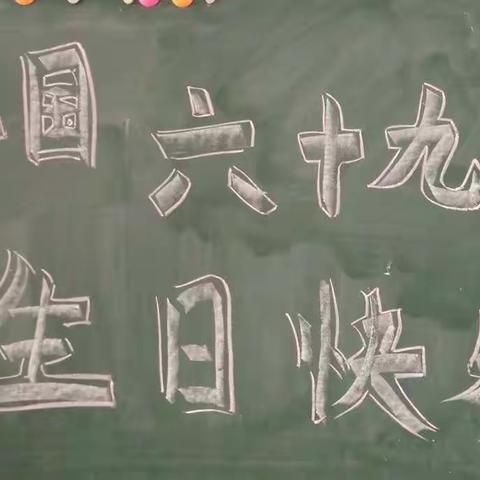 国六十九
生日快